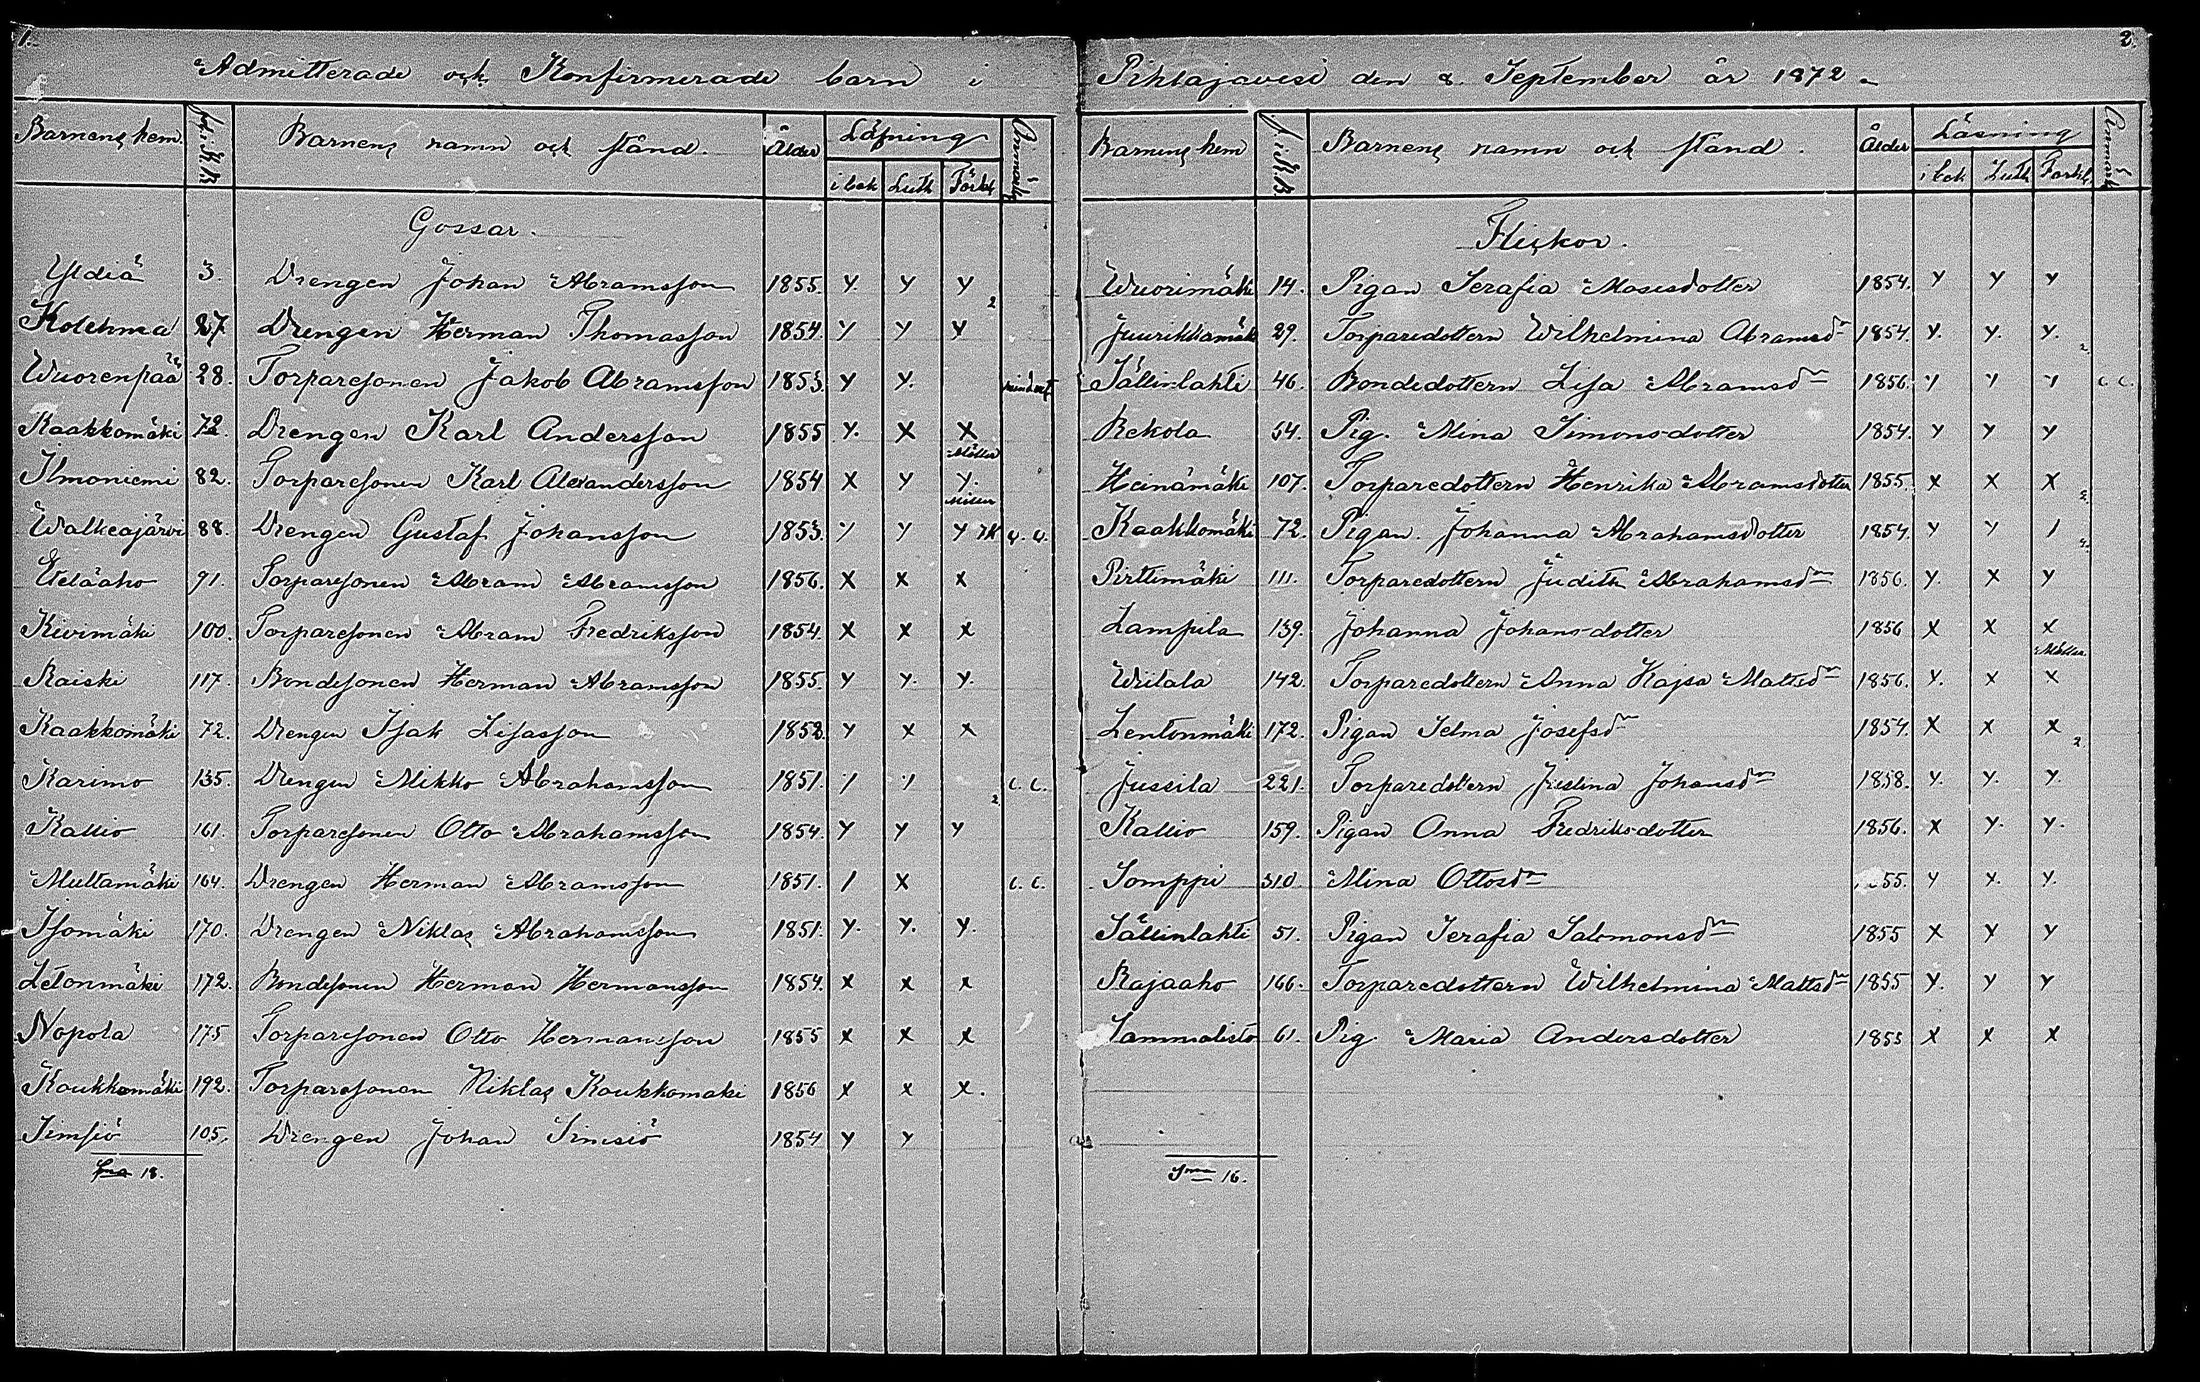 1.
Admitterade och Konfirmerade barn i
Barnens hem. Barnens namn och stånd. Ålder Läsning Anmärk
i bok Luth Förkl
Gossar.
Yldiä 3. Drengen Johan Abramsson 1855. y. y y 2
Kolehma 27 Drengen Herman Thomasson 1854 y y y
Wuorenpää 28. Torparesonen Jakob Abramsson 1853 y y.
Kaakkomäki 72. Drengen Karl Andersson 1855 y. x x
Ilmoniemi 82. Torparesonen Karl Alexandersson 1854 x y y.
Walkeajärvi 88. Drengen Gustaf Johansson 1853 y y y
Eteläaho 91. Torparesonen Abram Abramsson 1856. x x x
Kivimäki 100. Torparesonen Abram Fredriksson 1854. x x x
Raiski 117. Bondesonen Herman Abramsson 1855. y y. y.
Kaakkomäki 72. Drengen Isak Lisasson 1852 y x x
Karimo 135. Drengen Mikko Abrahamsson 1851. / / 2 c. c.
Kallio 161. Torparesonen Otto Abrahamsson 1854. y y y
Multamäki 164. Drengen Herman Abramsson 1851. / x c. c.
Isomäki 170. Drengen Niklas Abrahamsson 1851. y. y. y.
Letonmäki 172. Bondesonen Herman Hermansson 1854. x x x
Nopola 175 Torparesonen Otto Hermansson 1855 x x x
Koukkomäki 192. Torparesonen Niklas Koukkomaki 1856 x x x.
Simsiö 105. Drengen Johan Simsiö 1854 y y
Sma 18.
2.
Pihlajavesi den 8. September år 1872.
Barnens hem Barnens namn och stånd. Ålder Läsning Anmärk
i bok Luth Förkl.
Flickor.
Wuorimäki 14. Pigan Serafia Mosesdotter 1854. y y y
Juurikkamäki 29. Torparedottern Wilhelmina Abramsdr 1854. y. y. y. 2
Sällinlahti 46. Bondedottern Lisa Abramsdr 1856. y y y c. c.
Rekola 54. Pig. Mina Simonsdotter 1854. y y y
Heinämäki 107. Torparedottern Henrika Abramsdotter 1855. x x x 2
Kaakkomäki 72. Pigan Johanna Abrahamsdotter 1854. y y /
Pirttimäki 111. Torparedottern Judith Abrahamsdr 1856. y. x y
Lampila 139. Johanna Johansdotter 1856 x x x
Writala 142. Torparedottern Anna Kajsa Mattsdr 1856. y. x x
Lentonmäki 172. Pigan Selma Josefsdr 1854. x x x 2
Jussila 221. Torparedottern Justina Johansdr 1858. y. y. y.
Kallio 159. Pigan Anna Fredriksdotter 1856. x y. y.
Somppi 310 Mina Ottosdr 55. y x. y.
Sällinlahti 51. Pigan Serafia Salomonsdr 1855 x y y
Rajaaho 166. Torparedottern Wilhelmina Mattsdr 1855 y. y y
Sammalisto 61. Pig Maria Andersdotter 1855 x x x
Sma 16.